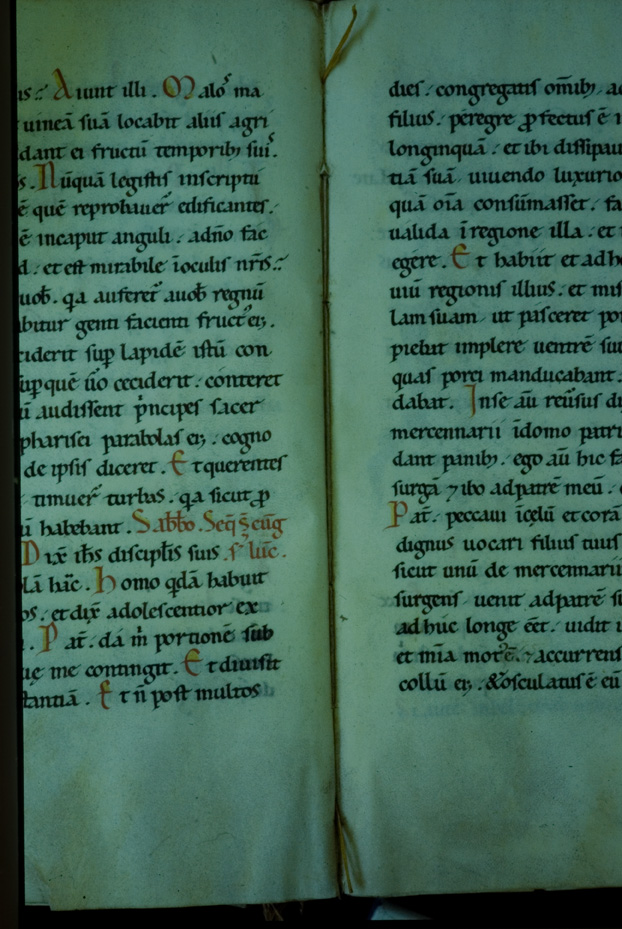 is : Aiunt illi . Malos ma
uineā suā locabit alius agri
dant ei fructū temporibꝫ suis .
s . Nūquā legistis inscriptu
ē quē reprobauer̄ edificantes .
ē incaput anguli . adn̄o fac
d . et est mirabile ī oculis nr̄is :
uob̄ . q̄a auferet̄ auob̄ regnū
abitur genti facienti fruct eiꝫ .
ciderit sup̄ lapidē istū con
sup̄ quē ūo ceciderit . conteret
ū audissent p̄ncipes sacer
pharisei parabolas eiꝫ . cogno
de ipsis diceret . Et querentes
timuer̄ turbas . q̄a sicut ꝓ
ū habebant . Sabb̄o . Seq̄ s̄ eūg
Dix̄ ih̄s discip̄lis suis . s̄ luc̄ .
lā hāc . homo q̄dā habuit
os . et dix̄ adolescentior ex
. Pat̄ . da m̄ portionē sub
ue me contingit . Et diuisit
tantiā . Et n̄ post multos
dies . congregatis om̄ibꝫ . ad
filius . peregre ꝓfectus ē ī
longinquā . et ibi dissipau
tiā suā . uiuendo luxurio
quā oīa consūmasset . fa
ualida ī regione illa . et
egere . Et habiit et adh
uiū regionis illius . et mis
lam suam . ut pasceret por
piebat implere uentrē su
quas porci manducabant .
dabat . Inse aū reūsus di
mercennarii īdomo patri
dant panibꝫ . ego aū hic fa
surgā ⁊ ibo ad patrē meū .
Pat̄ . peccaui ī cęlū et corā
dignus uocari filius tuus
sicut unū de mercennarii
surgens uenit ad patrē su
adhuc longe eēt . uidit
et mīa mot ē . ⁊ accurrens
collū eiꝫ . & osculatus ē eū